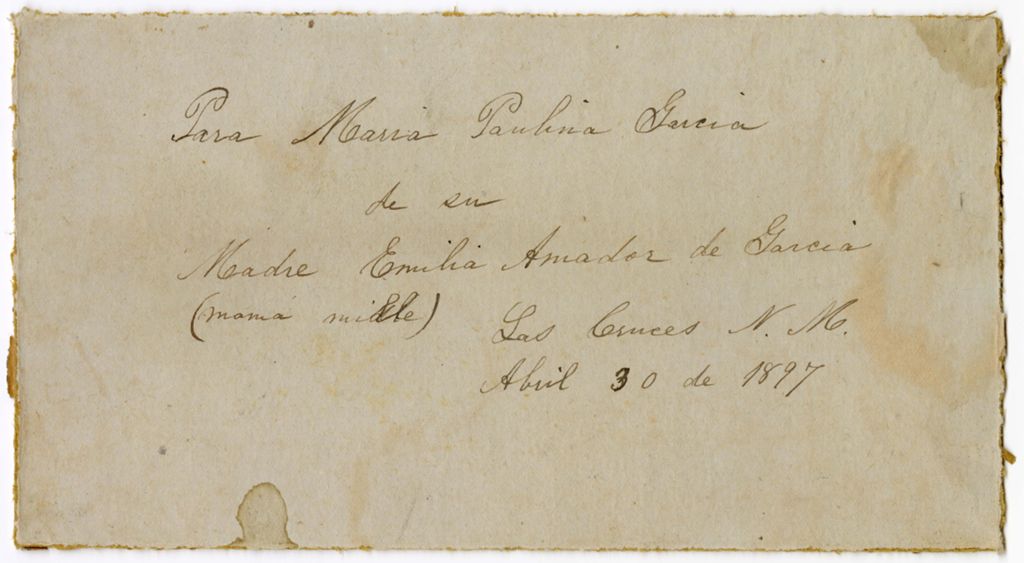 Para Maria Paulina Garcia
de su
Madre Emilia Amador de Garcia
(mamá mille)
Las Cruces N. M.
Abril 30 de 1897